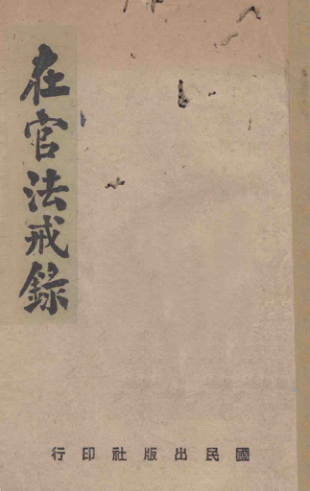 在官法戒錄
國民出版社印行